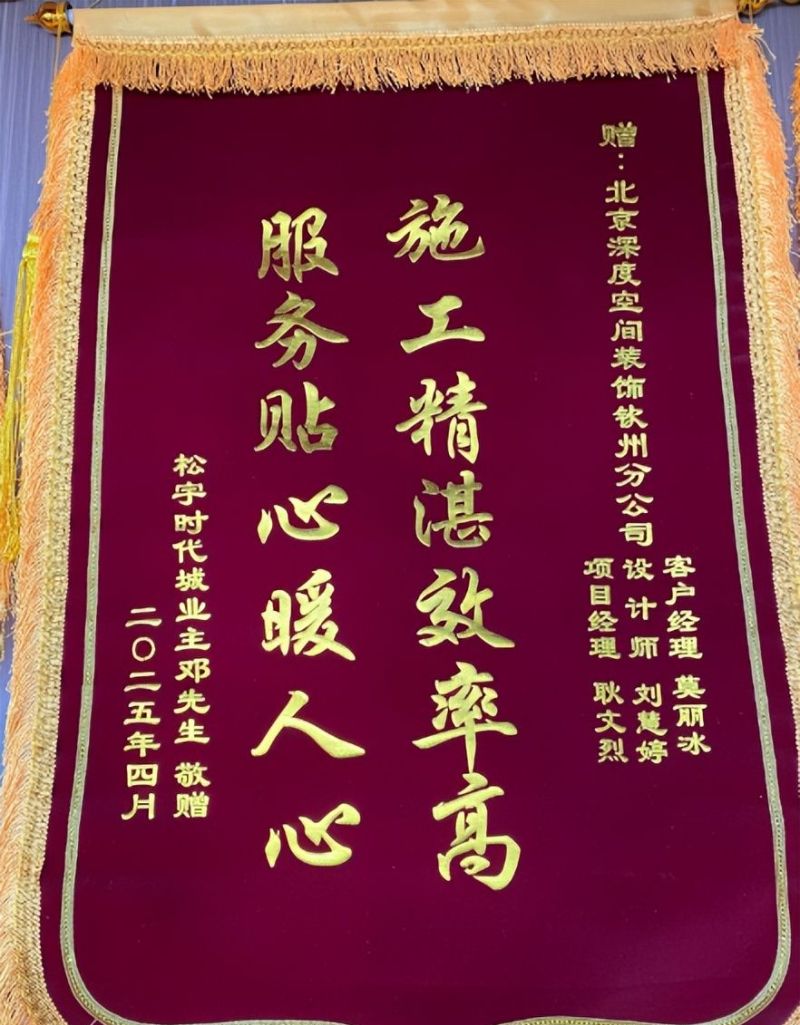 赠：北京深度空间装饰钦州分公司
客户经理 莫丽冰
设计师 刘慧婷
项目经理 耿文烈
施工精湛效率高
服务贴心暖人心
松宇时代城业主邓先生 敬赠
二〇二五年四月